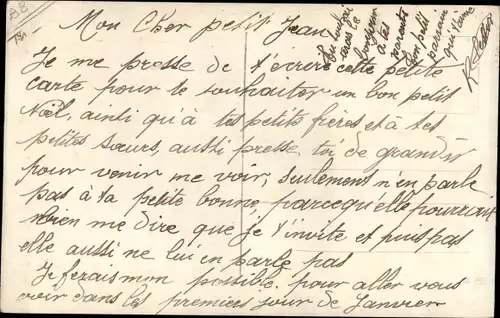 Mon Cher petit Jean
Je me presse de t'écrire cette petite
carte pour te souhaiter un bon petit
Noël, ainsi qu'à tes petits frères et à tes
petites sœurs, aussi presse toi de grandir
pour venir me voir, seulement n'en parle
pas à ta petite bonne parcequ'elle pourrait
bien me dire que je t'invite et puis pas
elle aussi ne lui en parle pas
Je ferais mon possible pour aller vous
voir dans les premiers jour de Janvier
bonjour
à tes
parents
ton petit
parrain
qui t'aime